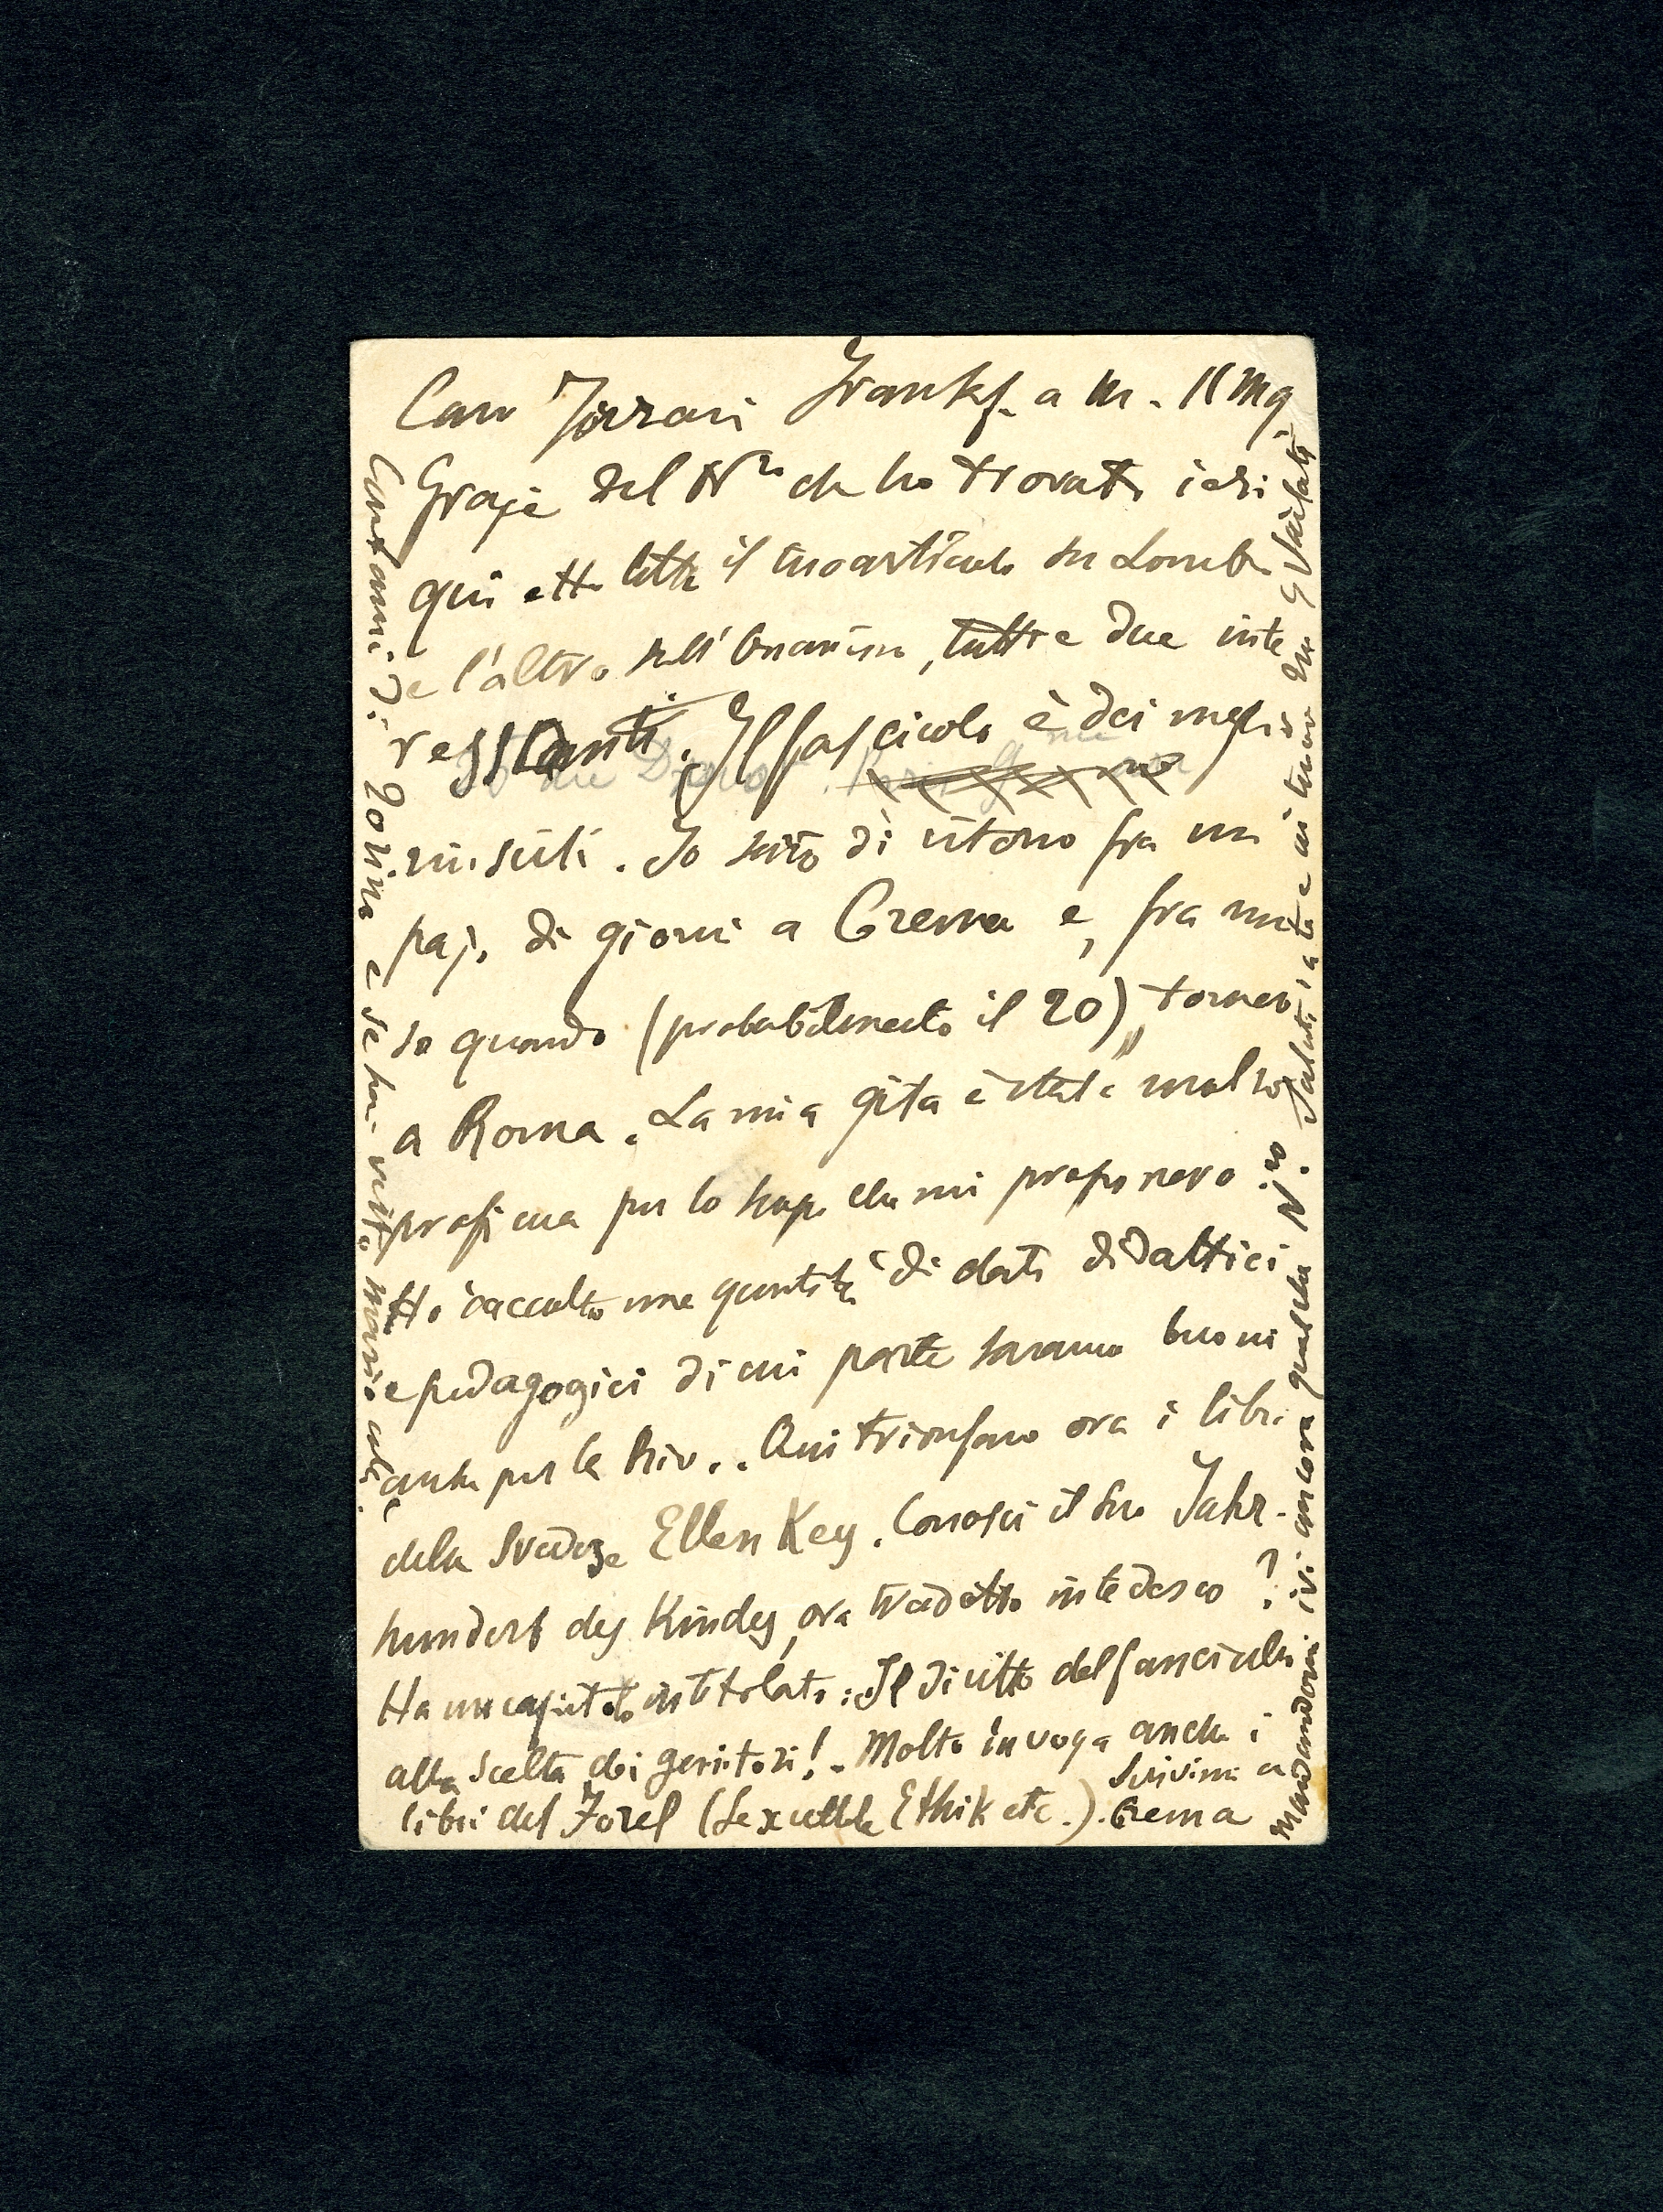 Caro Ferrari Frankf. a M. 11 Mg
Grazie del N.ro che ho trovato ieri
qui. Ho letto il tuo articolo su Lombr.
e l'altro sull'Onanismo, tutti e due inte
ressanti. Il fascicolo è dei meglio
riusciti. Io sarò di ritorno fra un
pajo di giorni a Crema e, fra non
so quando (probabilmente il 20), tornerò
a Roma. La mia gita è stata molto
proficua per lo scopo che mi proponevo
Ho raccolto una quantità di dati didattici
e pedagogici di cui parte saranno buoni
anche per la Riv.. Qui trionfano ora i libri
della Svedese Ellen Key. Conosci il suo Jahr-
hundert des Kindes, ora tradotto in tedesco?
Ha un capitolo intitolato: Il diritto del fanciullo
alla scelta dei genitori! - Molto in voga anche i
libri del Forel (Sexuelle Ethik etc.). Scrivimi a
Crema
Mandandomi ivi ancora qualche N.ro. Saluti a te e ai tuoi dal G Vailati
Contami di Torino e se hai visto Mario colà.